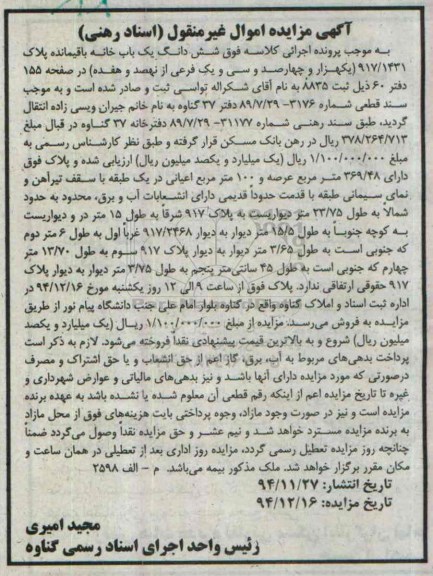 آگهی مزایده اموال غیرمنقول (اسناد رهنی)
به موجب پرونده اجرائی کلاسه فوق شش دانگ یک باب خانه باقیمانده پلاک
۹۱۷/۱۴۳۱ (یکهزار و چهارصد و سی و یک فرعی از نهصد و هفده) در صفحه ۱۵۵
دفتر ۶۰ ذیل ثبت ۸۸۳۵ به نام آقای شکراله تواسی ثبت و صادر شده است و به موجب
سند قطعی شماره ۳۱۷۶- ۸۹/۷/۲۹ دفتر ۳۷ گناوه به نام خانم جیران ویسی زاده انتقال
گردید، طبق سند رهنی شماره ۳۱۱۷۷- ۸۹/۷/۲۹ دفترخانه ۳۷ گناوه در قبال مبلغ
۳۷۸/۲۶۴/۷۱۳ ریال در رهن بانک مسکن قرار گرفته و طبق نظر کارشناس رسمی به
مبلغ ۱/۱۰۰/۰۰۰/۰۰۰ ریال (یک میلیارد و یکصد میلیون ریال) ارزیابی شده و پلاک فوق
دارای ۳۶۹/۴۸ متر مربع عرصه و ۱۰۰ متر مربع اعیانی در یک طبقه با سقف تیرآهن و
نمای سیمانی طبقه با قدمت حدوداً قدیمی دارای انشعابات آب و برق، محدود به حدود
شمالا به طول ۲۳/۷۵ متر دیواریست به پلاک ۹۱۷ شرقا به طول ۱۵ متر در و دیواریست
به کوچه جنوبا به طول ۱۵/۵ متر دیوار به دیوار ۹۱۷/۲۴۶۸ غرباً اول به طول ۶ متر دوم
که جنوبی است به طول ۳/۶۵ متر دیوار به دیوار پلاک ۹۱۷ سوم به طول ۱۳/۷۰ متر
چهارم که جنوبی است به طول ۴۵ سانتی‌متر پنجم به طول ۳/۷۵ متر دیوار به دیوار پلاک
۹۱۷ حقوقی ارتفاقی ندارد. پلاک فوق از ساعت ۹ الی ۱۲ روز یکشنبه مورخ ۹۴/۱۲/۱۶ در
اداره ثبت اسناد و املاک گناوه واقع در گناوه بلوار امام علی جنب دانشگاه پیام نور از طریق
مزایده به فروش می‌رسد. مزایده از مبلغ ۱/۱۰۰/۰۰۰/۰۰۰ ریال (یک میلیارد و یکصد
میلیون ریال) شروع و به بالاترین قیمت پیشنهادی نقداً فروخته می‌شود. لازم به ذکر است
پرداخت بدهی‌های مربوط به آب، برق، گاز اعم از حق انشعاب و یا حق اشتراک و مصرف
درصورتی که مورد مزایده دارای آنها باشد و نیز بدهی‌های مالیاتی و عوارض شهرداری و
غیره تا تاریخ مزایده اعم از اینکه رقم قطعی آن معلوم شده یا نشده باشد به عهده برنده
مزایده است و نیز در صورت وجود مازاد، وجوه پرداختی بابت هزینه‌های فوق از محل مازاد
به برنده مزایده مسترد خواهد شد و نیم عشر و حق مزایده نقداً وصول می‌گردد ضمناً
چنانچه روز مزایده تعطیل رسمی گردد، مزایده روز اداری بعد از تعطیلی در همان ساعت و
مکان مقرر برگزار خواهد شد. ملک مذکور بیمه می‌باشد. م - الف ۲۵۹۸
تاریخ انتشار: ۹۴/۱۱/۲۷
تاریخ مزایده: ۹۴/۱۲/۱۶
مجید امیری
رئیس واحد اجرای اسناد رسمی گناوه